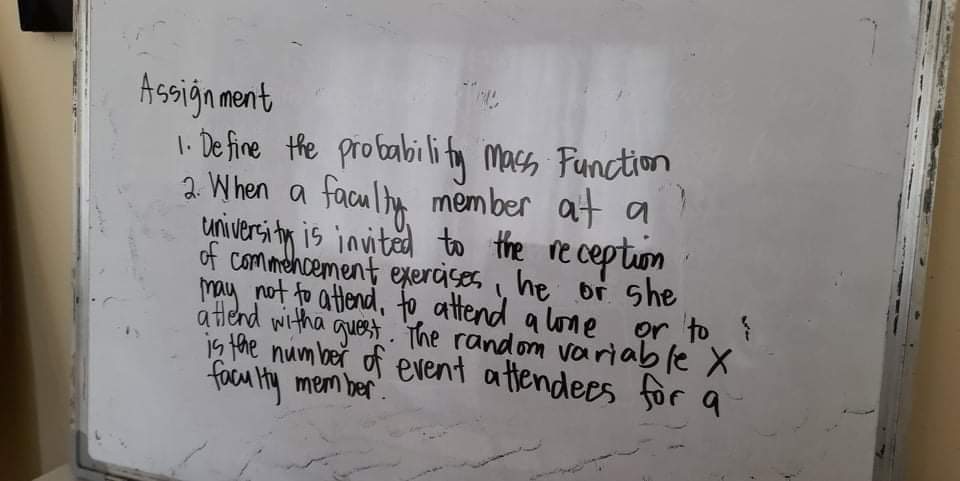 Assignment
1. Define the probability Mass Function
2. When a faculty member at a
university is invited to the reception
of commencement exercises, he or she
may not to attend, to attend alone or to
attend with a guest. The random variable X
is the number of event attendees for a
faculty member.